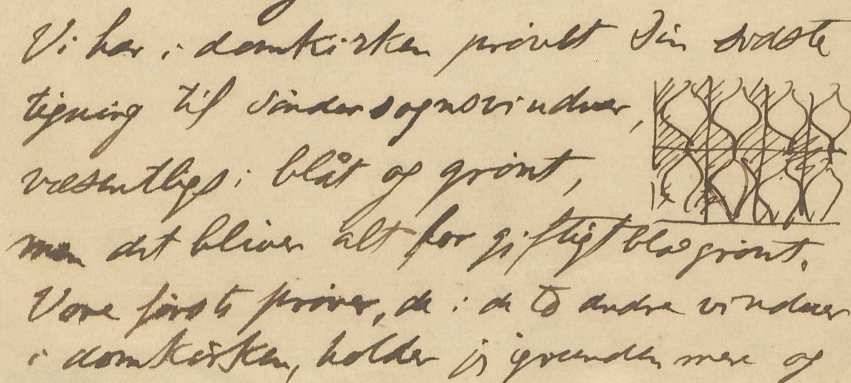 Vi har i domkirken prøvet Din sidste
tegning til Søndersognsvinduer,
væsentligs i blåt og grønt,
men det bliver alt for giftigt blågrønt.
Vore første prøver, de i de to andre vinduer
i domkirken, holder jeg grunden mere og